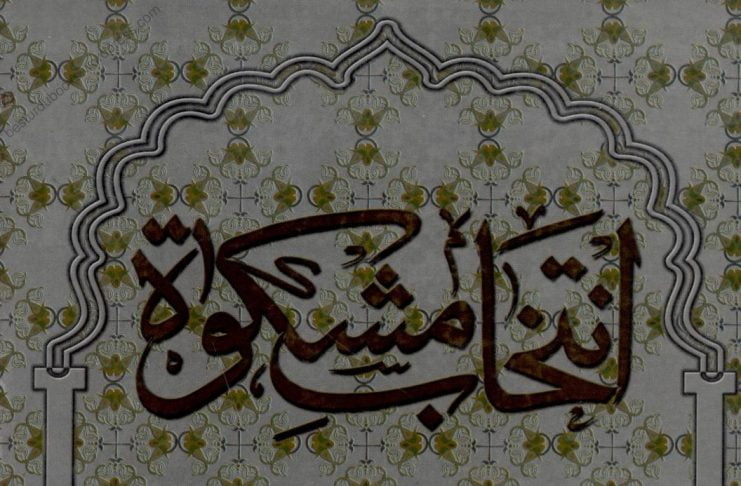 انتخابِ مشکوٰۃ